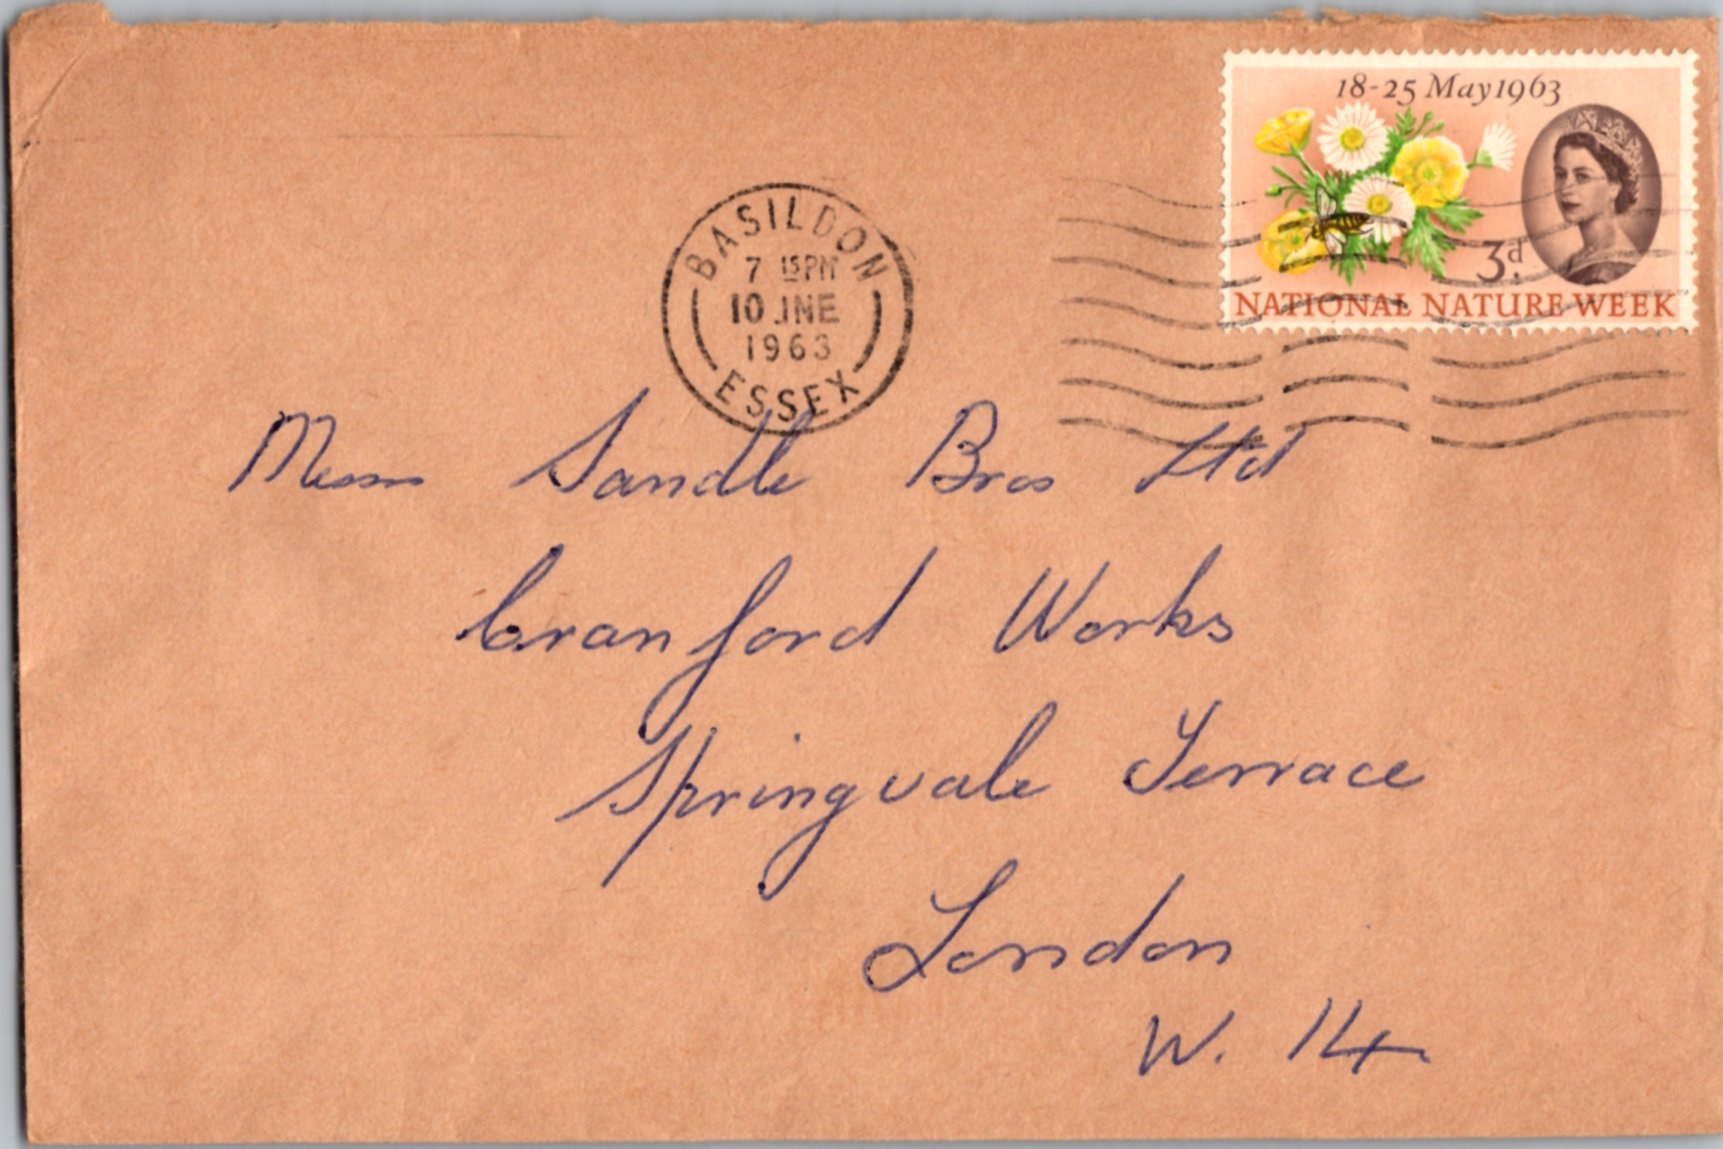 18-25 May 1963
3d.
NATIONAL NATURE WEEK
BASILDON
7 15 PM
10 JNE
1963
ESSEX
Messrs Sandle Bros Ltd
Cranford Works
Springvale Terrace
London
W. 14